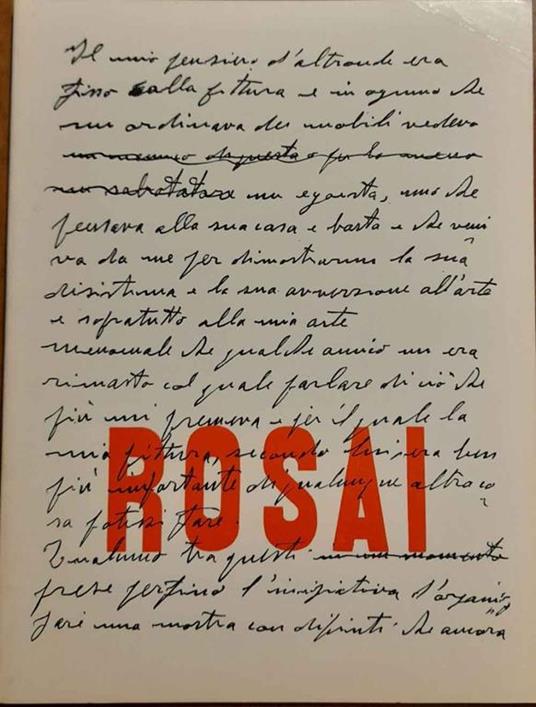 Il mio pensiero d'altronde era
fisso alla pittura e in ognuno che
mi ordinava dei mobili vedevo
un nemico di questa o per lo meno
un sabotatore un egoista, uno che
pensava alla sua casa e basta e che veni
va da me per dimostrarmi la sua
disistima e la sua avversione all'arte
e sopratutto alla mia arte
menomale che qualche amico mi era
rimasto col quale parlare di ciò che
più mi premeva e per il quale la
mia pittura secondo lui era ben
più importante di qualunque altra co
sa potessi fare.
ROSAI
Qualcuno tra questi in un momento
prese perfino l'iniziativa d'organiz
zare una mostra con dipinti che ancora